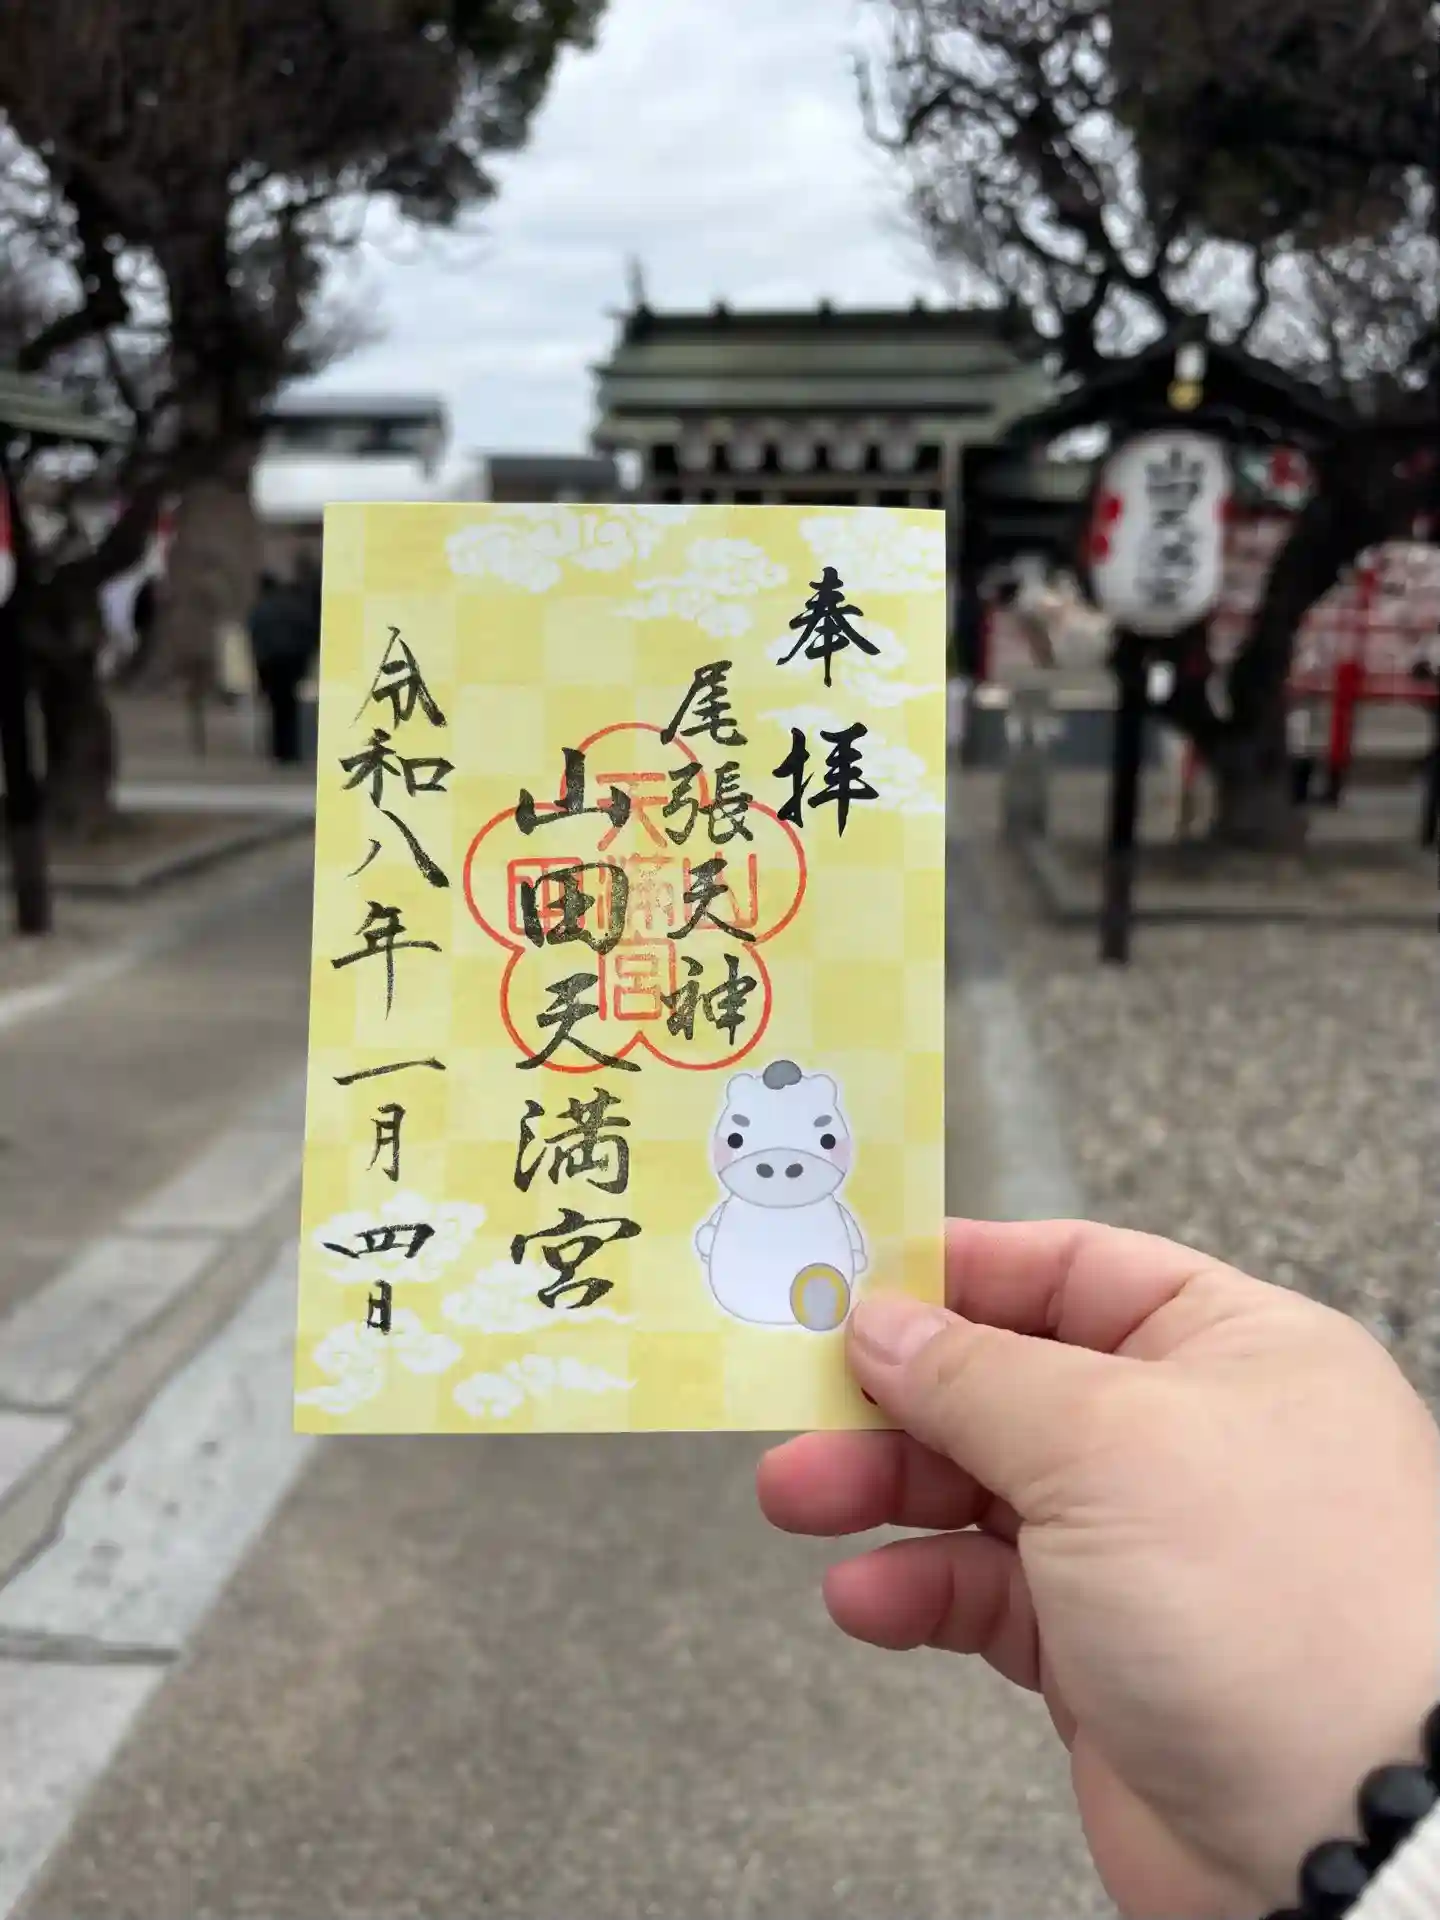 奉拝
尾張天神
山田天満宮
令和八年一月四日
天満宮
山
田
山田天満宮